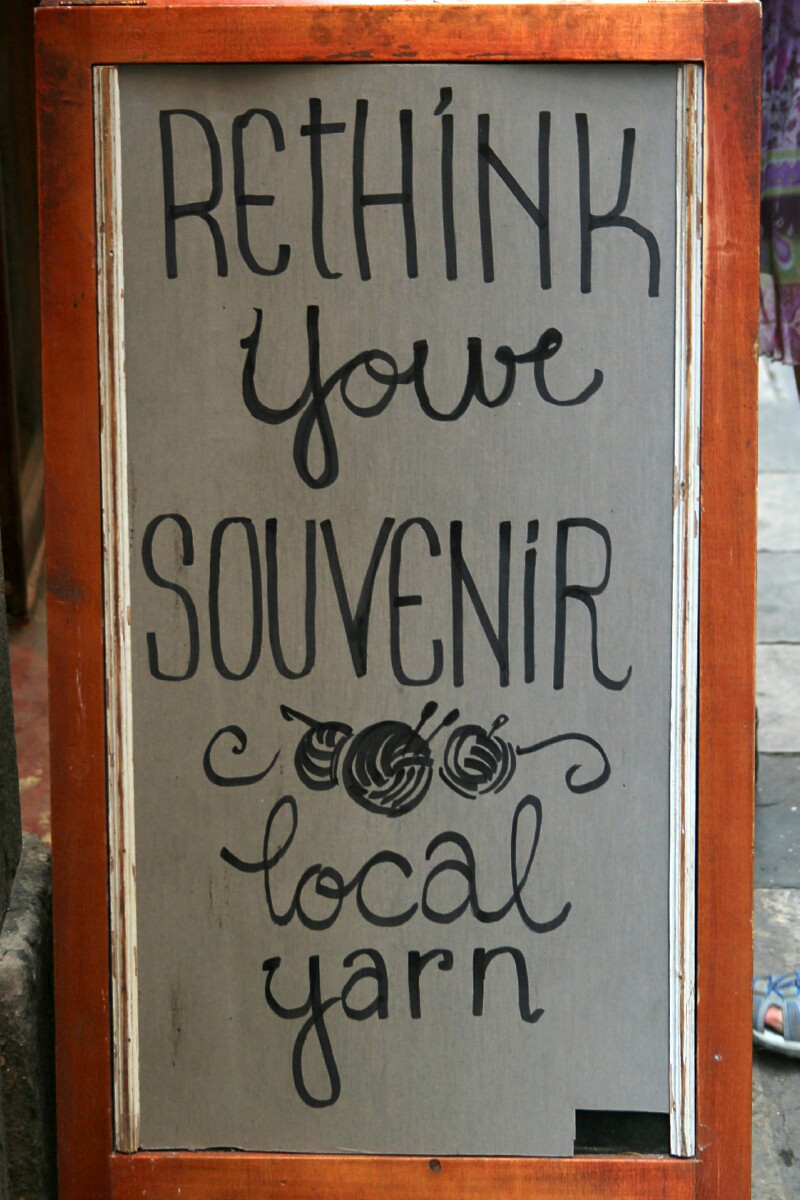 RETHINK
your
SOUVENIR
local
yarn